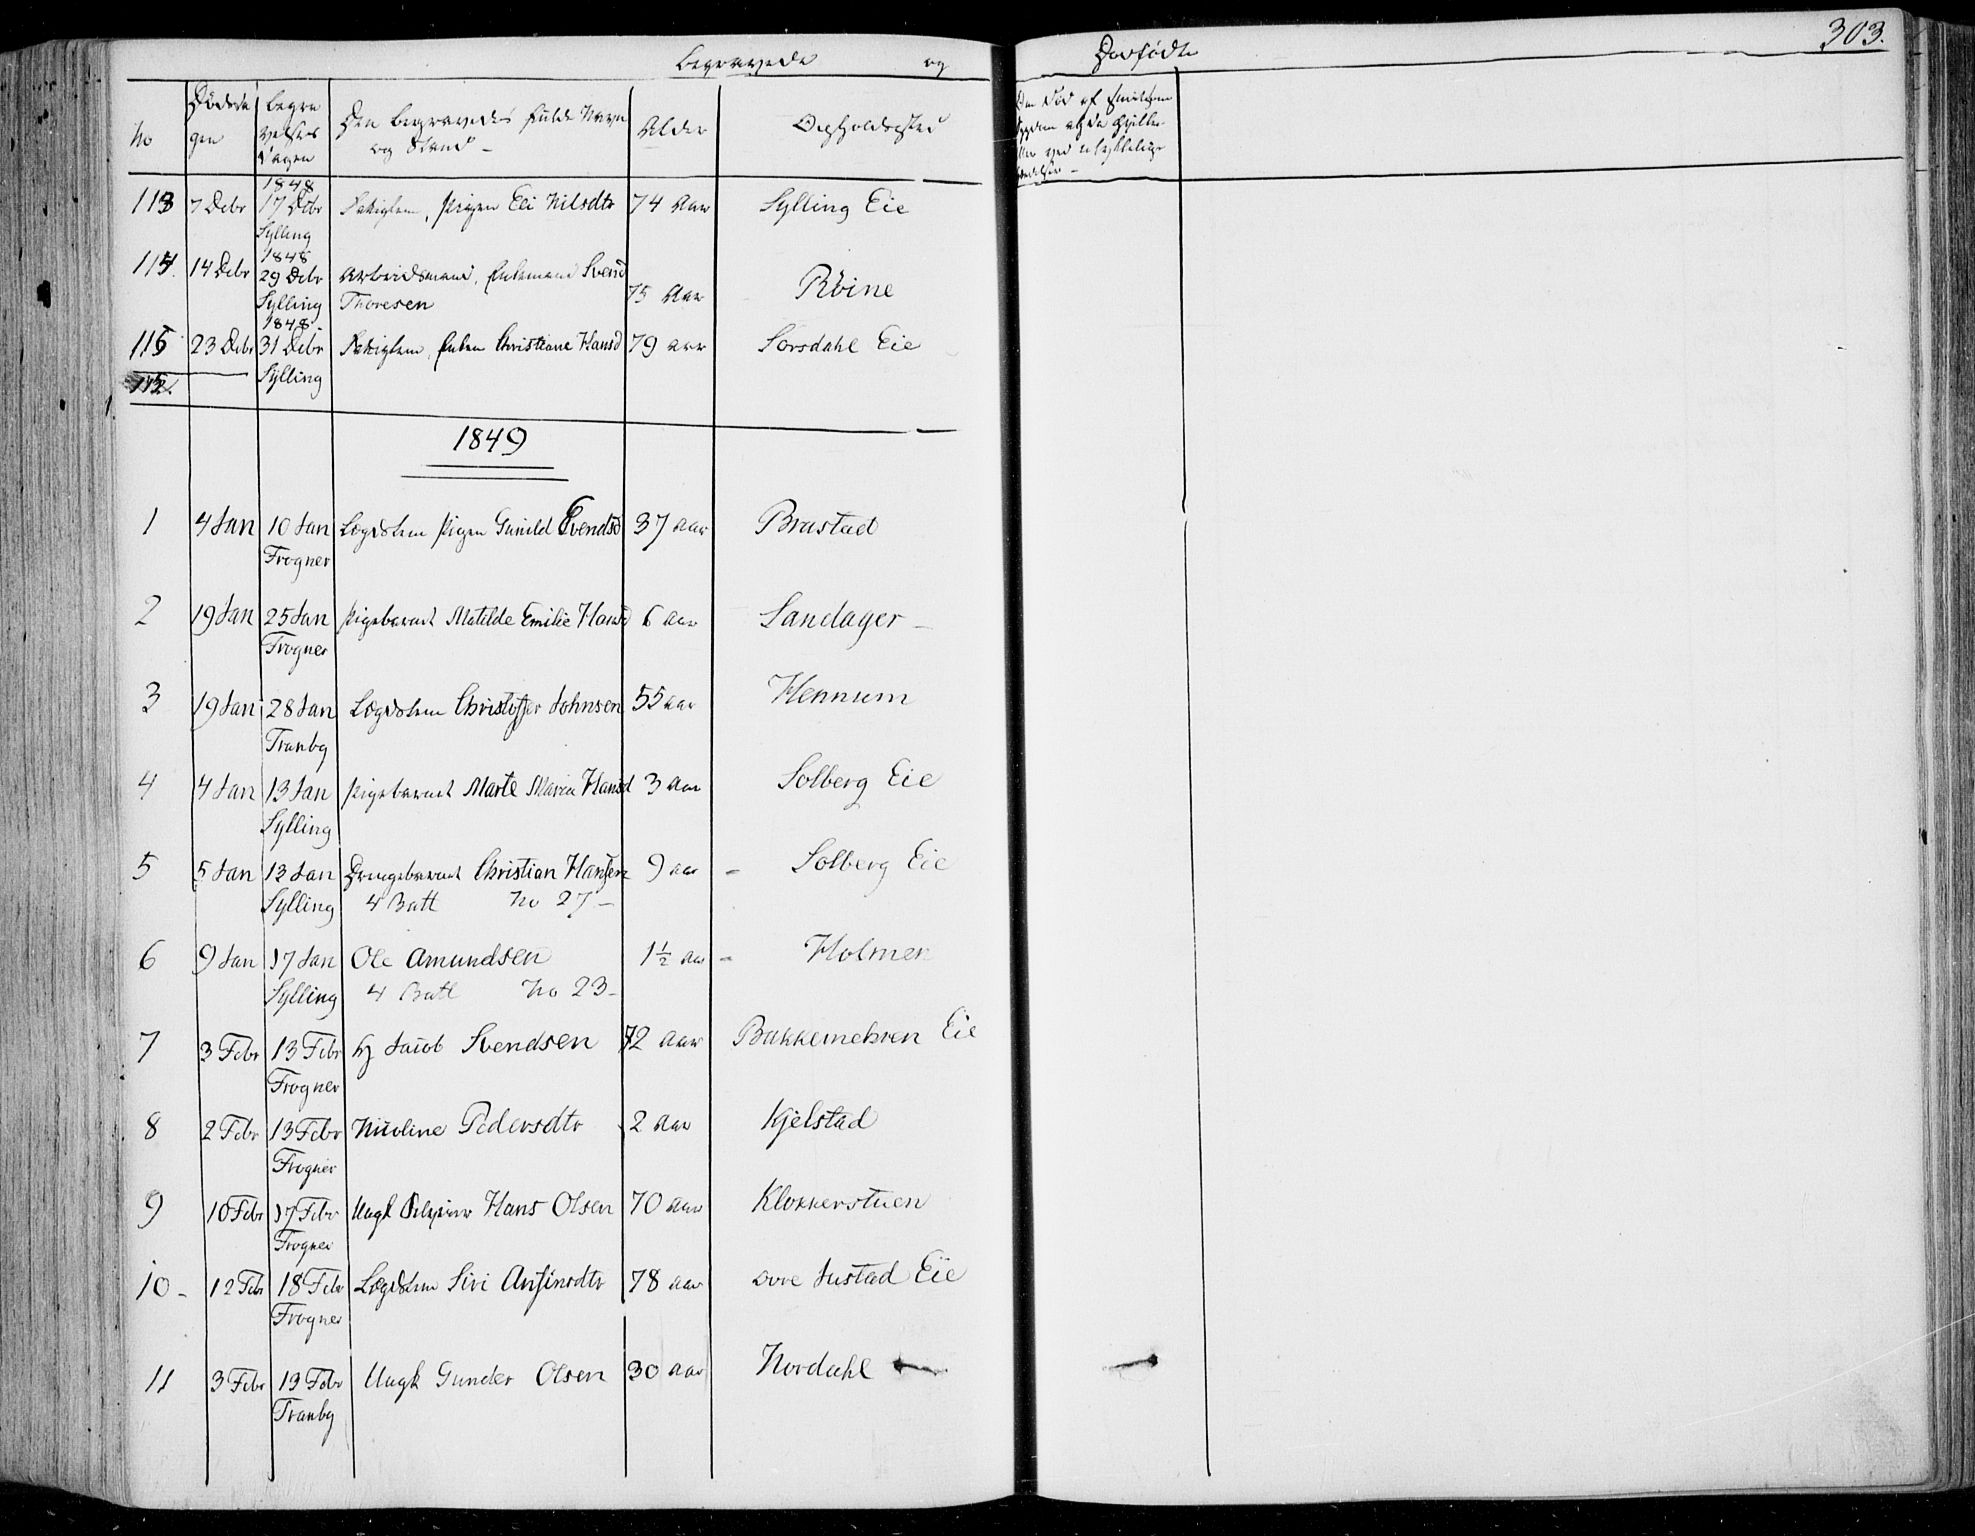 303.
Begravede og Dødfødte
No
Dødsda
gen
Begra
velses
Dagen
Den Begravedes fulde Navn
og Stand
Alder
Opholdssted
113 7 Decbr 1848 17 Decbr Sylling Pigen Eli Nilsdtr 74 Aar Sylling Eie
114. 14 Decbr 1848 29 Decbr Sylling Arbeidsmand, Enkemand Svend
Thoresen 75 Aar Röine
115 23 Decbr 1848 31 Decbr Sylling Enken Christiane Hansd 79 Aar Sørsdahl Eie
1849
1 4 Jan 10 Jan Frogner Lægdslem Pigen Gunild Svendsd 37 Aar Brastad
2 19 Jan 25 Jan Frogner Pigebarnet Matilde Emilie Hansd 6 Aar Sandager
3 19 Jan 28 Jan Tranbg Lægdslem Christoffer Johnsen 55 aar Hennum
4 4 Jan 13 Jan Sylling Pigebarnet Marte Maria Hansd 3 Aar Solberg Eie
5 5 Jan 13 Jan Sylling Drengebarnet Christian Hansen 9 aar - Solberg Eie
4 Batt No 27 -
6 9 Jan 17 Jan Sylling Ole Amundsen 1½ Aar - Holmen
4 Batt No 23 -
7 3 Febr 13 Febr Frogner Jacob Svendsen 72 Aar Bakkemehren Eie
8 2 Febr 13 Febr Frogner Nicoline Pedersdtr 2 Aar Kjelstad
9 10 Febr 17 Febr Frogner Ungk Hans Olsen 70 Aar Klokkerstuen
10 - 12 Febr 18 Febr Frogner Lægdslem Siri 78 aar Justad Eie
11 3 Febr 19 Febr Tranbg Ungk Gunder Olsen 30 Aar Nordahl